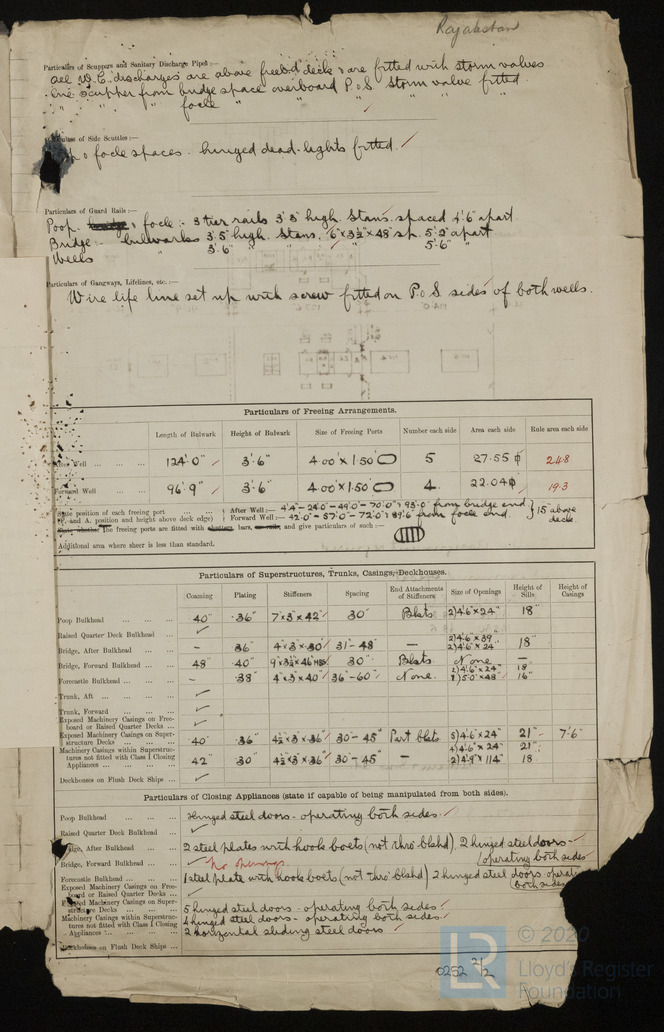 Rajahstan
Particulars of Scuppers and Sanitary Discharge Pipes:—
All W.C. discharges are above freeb'd deck & are fitted with storm valves
One scupper from bridge space overboard P & S. Storm valve fitted.
" " " focle " " " " "
Particulars of Side Scuttles:—
& focle spaces. hinged dead-lights fitted. ✓
Particulars of Guard Rails:—
Poop. & focle:- 3 tier rails 3'3" high. Stans. spaced 4'6" apart
Bridge:- bulwarks 3'5" high. Stans. 6"x3½"x.48" sp. 5'2" apart.
Wells " 3'6" " " 5'6" "
Particulars of Gangways, Lifelines, etc.:—
Wire life line set up with screw fitted on P & S sides of both wells.
Particulars of Freeing Arrangements.
Length of Bulwark Height of Bulwark Size of Freeing Ports Number each side Area each side Rule area each side
After Well 124'0" 3'6" 4.00' x 1.50' 5 27.55 24.8
Forward Well 96'9" 3'6" 4.00' x 1.50' 4. 22.04 19.3
State position of each freeing port After Well:— 4'4"-24'0"-49'0"-70'0" & 93'0" from bridge end
(F. and A. position and height above deck edge) Forward Well:— 42'0"-57'0"-72'0" & 89'6" from focle end. 15" above deck
State whether the freeing ports are fitted with shutters, bars, or rails, and give particulars of such:—
Additional area where sheer is less than standard.
Particulars of Superstructures, Trunks, Casings, Deckhouses.
Coaming Plating Stiffeners Spacing End Attachments of Stiffeners Size of Openings Height of Sills Height of Casings
Poop Bulkhead 40" .36" 7"x3"x.42" 30" Bkts 2) 4'6"x24" 18"
Raised Quarter Deck Bulkhead ✓
Bridge, After Bulkhead - .36" 4"x3"x.30" 31"-48" — 2) 4'6"x39" 2) 4'6"x24" 18"
Bridge, Forward Bulkhead 48" .40" 9"x3½"x.46" 30" Bkts None —
Forecastle Bulkhead - .38" 4"x3"x.40" 36"-60" None. 2) 4'6"x24" 1) 5'0"x48" 18" 16"
Trunk, Aft ✓
Trunk, Forward ✓
Exposed Machinery Casings on Freeboard or Raised Quarter Decks ✓
Exposed Machinery Casings on Superstructure Decks 40" .36" 4½"x3"x.36" 30"-45" Part bkts 5) 4'6"x24" 21" 7'6"
Machinery Casings within Superstructures not fitted with Class I Closing Appliances 42" .30" 4½"x3"x.36" 30"-45" — 4) 4'6"x24" 2) 4'9"x114" 21" 18
Deckhouses on Flush Deck Ships ✓
Particulars of Closing Appliances (state if capable of being manipulated from both sides).
Poop Bulkhead 2 hinged steel doors - operating both sides ✓
Raised Quarter Deck Bulkhead ✓
Bridge, After Bulkhead 2 steel plates with hook bolts (not thro' blkhd). 2 hinged steel doors - operating both sides
Bridge, Forward Bulkhead ✓ No openings.
Forecastle Bulkhead 1 steel plate with hook bolts (not thro' blkhd) 2 hinged steel doors operating both sides
Exposed Machinery Casings on Freeboard or Raised Quarter Decks ✓
Exposed Machinery Casings on Superstructure Decks 5 hinged steel doors - operating both sides ✓
Machinery Casings within Superstructures not fitted with Class I Closing Appliances 4 hinged steel doors - operating both sides ✓
2 horizontal sliding steel doors ✓
Deckhouses on Flush Deck Ships
0252 2/2
LR
© 2020
Lloyd's Register
Foundation